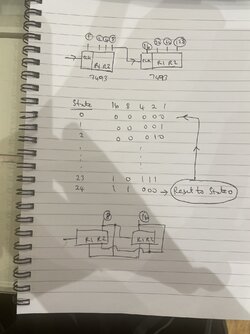 1 2 4 8
16 32 64 128
CLK
R1 R2
CLK
R1 R2
7493
7493
State 16 8 4 2 1
0 0 0 0 0 0
1 0 0 0 0 1
2 0 0 0 1 0
23 1 0 1 1 1
24 1 1 0 0 0 → Reset to State 0
8 16
R1 R2
R1 R2